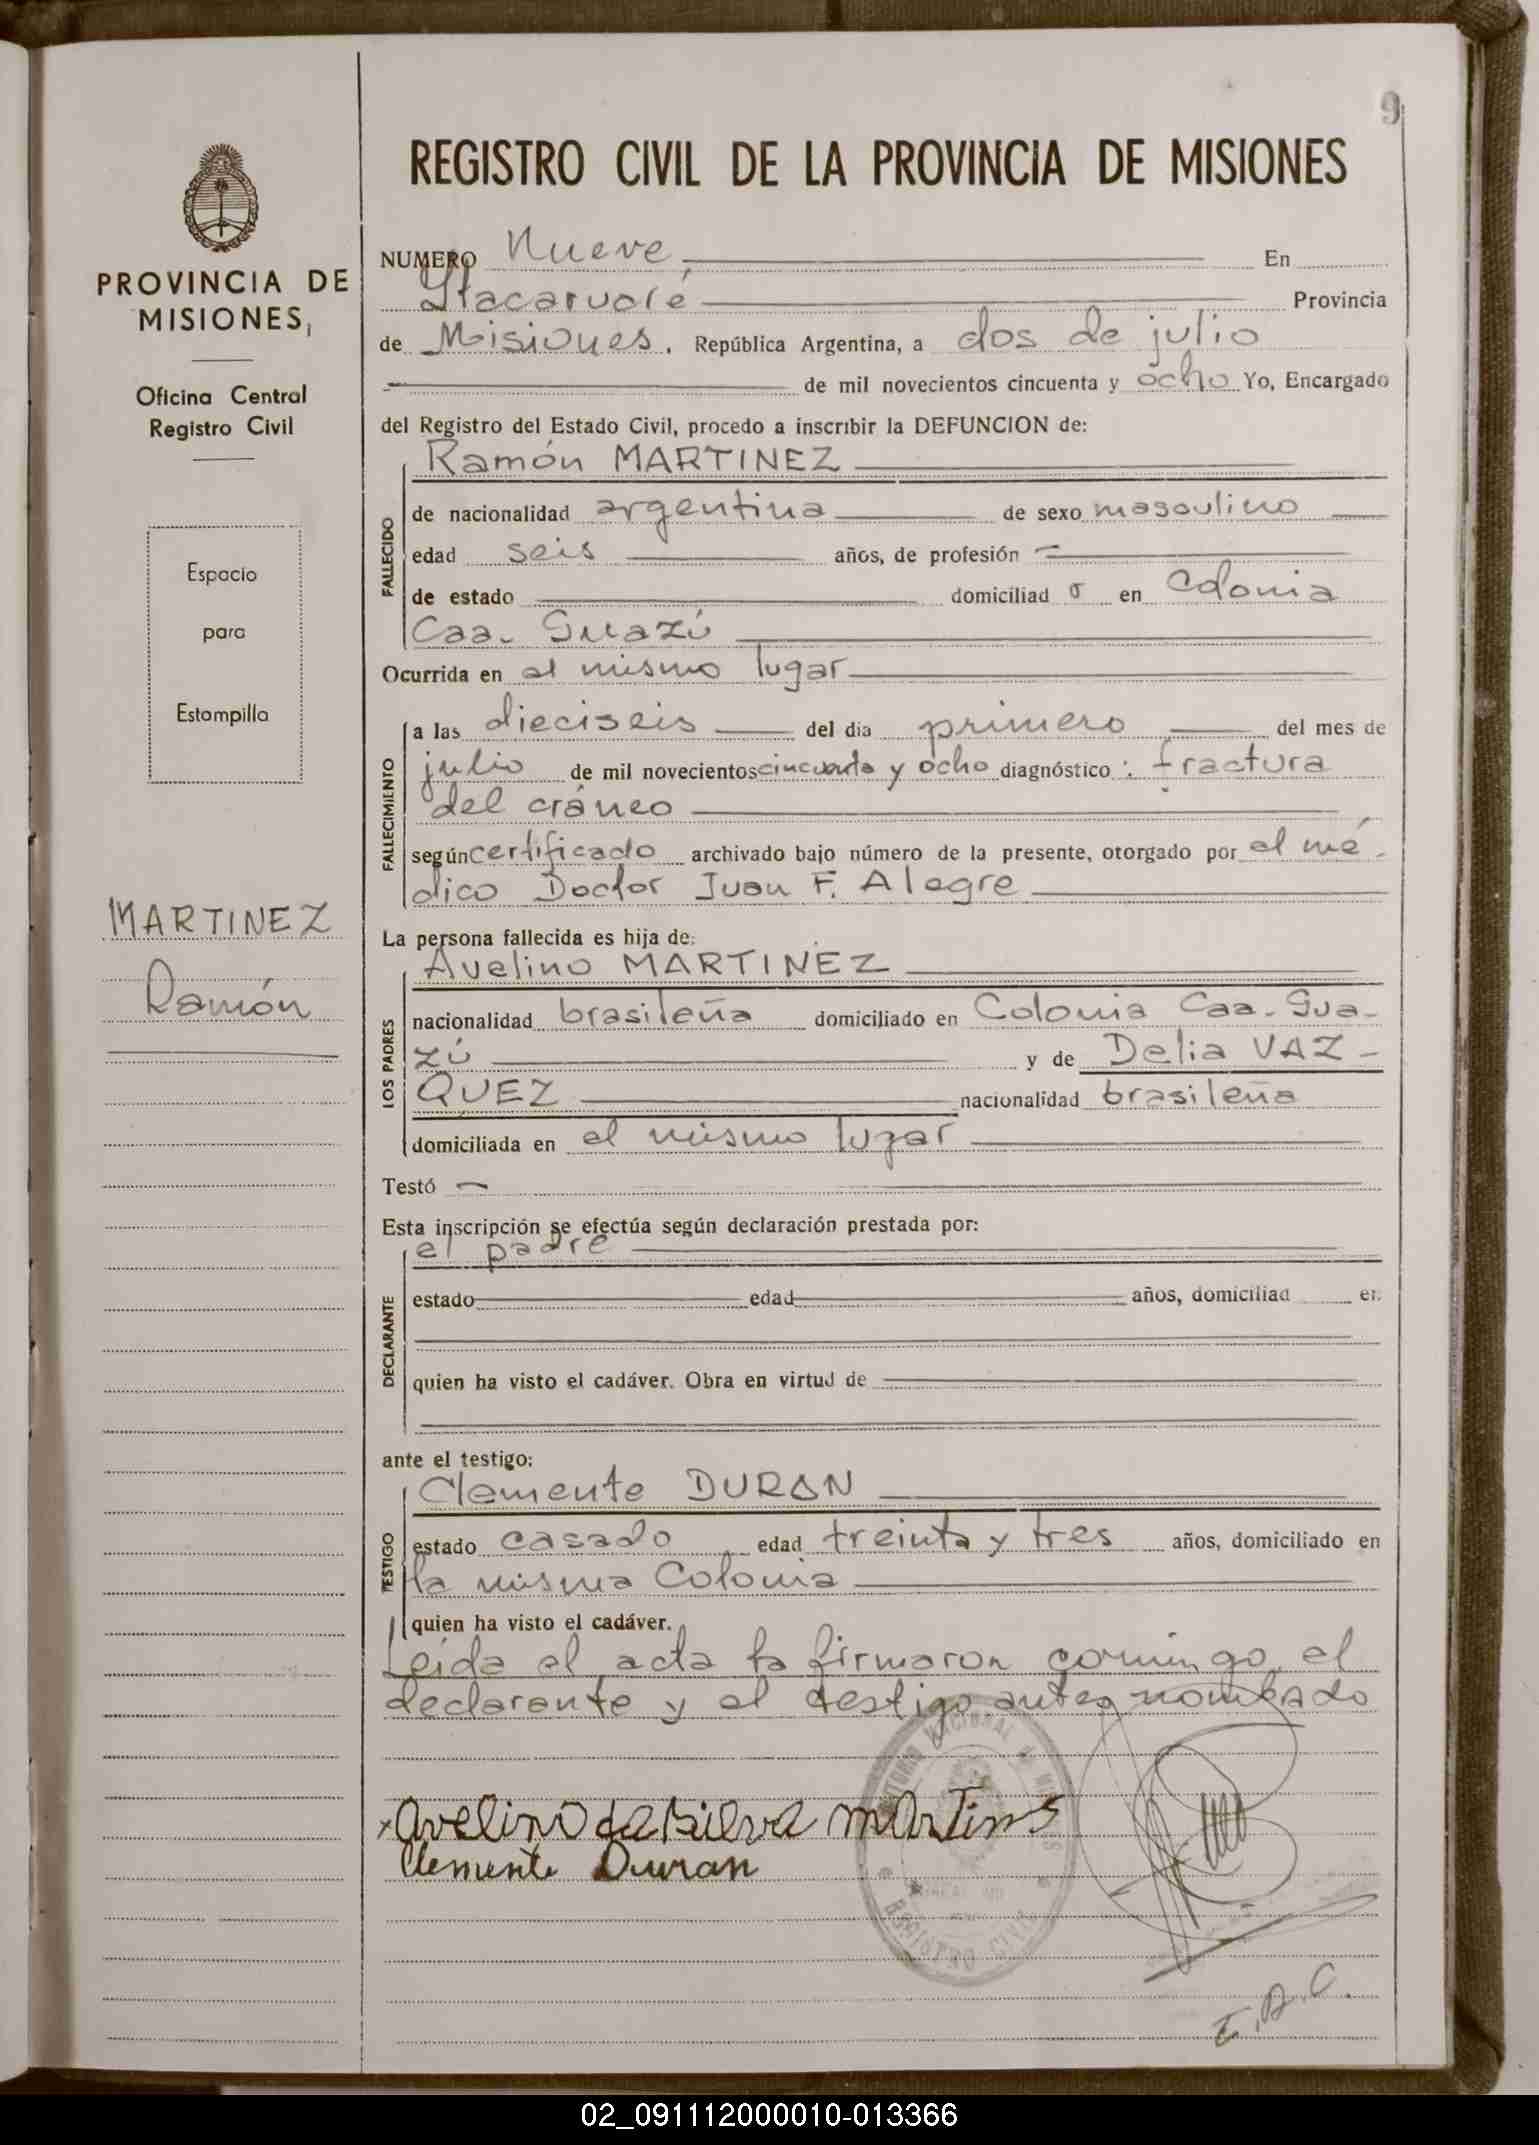 9
REGISTRO CIVIL DE LA PROVINCIA DE MISIONES
PROVINCIA DE
MISIONES,
Oficina Central
Registro Civil
Espacio
para
Estampilla
MARTINEZ
Ramón
NUMERO Nueve, En
Itacaruaré Provincia
de Misiones. República Argentina, a dos de julio
de mil novecientos cincuenta y ocho Yo, Encargado
del Registro del Estado Civil, procedo a inscribir la DEFUNCION de:
Ramón MARTINEZ
FALLECIDO
de nacionalidad argentina de sexo masculino
edad seis años, de profesión
de estado domiciliad o en Colonia
Caa-Guazú
Ocurrida en el mismo lugar
FALLECIMIENTO
a las dieciseis del dia primero del mes de
julio de mil novecientos cincuenta y ocho diagnóstico: fractura
del cráneo
según certificado archivado bajo número de la presente, otorgado por el mé-
dico Doctor Juan F. Alegre
La persona fallecida es hija de:
Avelino MARTINEZ
LOS PADRES
nacionalidad brasileña domiciliado en Colonia Caa-Gua-
zú y de Delia VAZ-
QUEZ nacionalidad brasileña
domiciliada en el mismo lugar
Testó
Esta inscripción se efectúa según declaración prestada por:
el padre
DECLARANTE
estado edad años, domiciliad en
quien ha visto el cadáver. Obra en virtud de
ante el testigo:
Clemente DURAN
TESTIGO
estado casado edad treinta y tres años, domiciliado en
la misma Colonia
quien ha visto el cadáver.
Leída el acta la firmaron conmigo el
declarante y el testigo antes nombrado
TERRITORIO NACIONAL DE MISIONES
REGISTRO CIVIL
x Avelino da Silva martins
Clemente Duran
E.R.C.
02_091112000010-013366